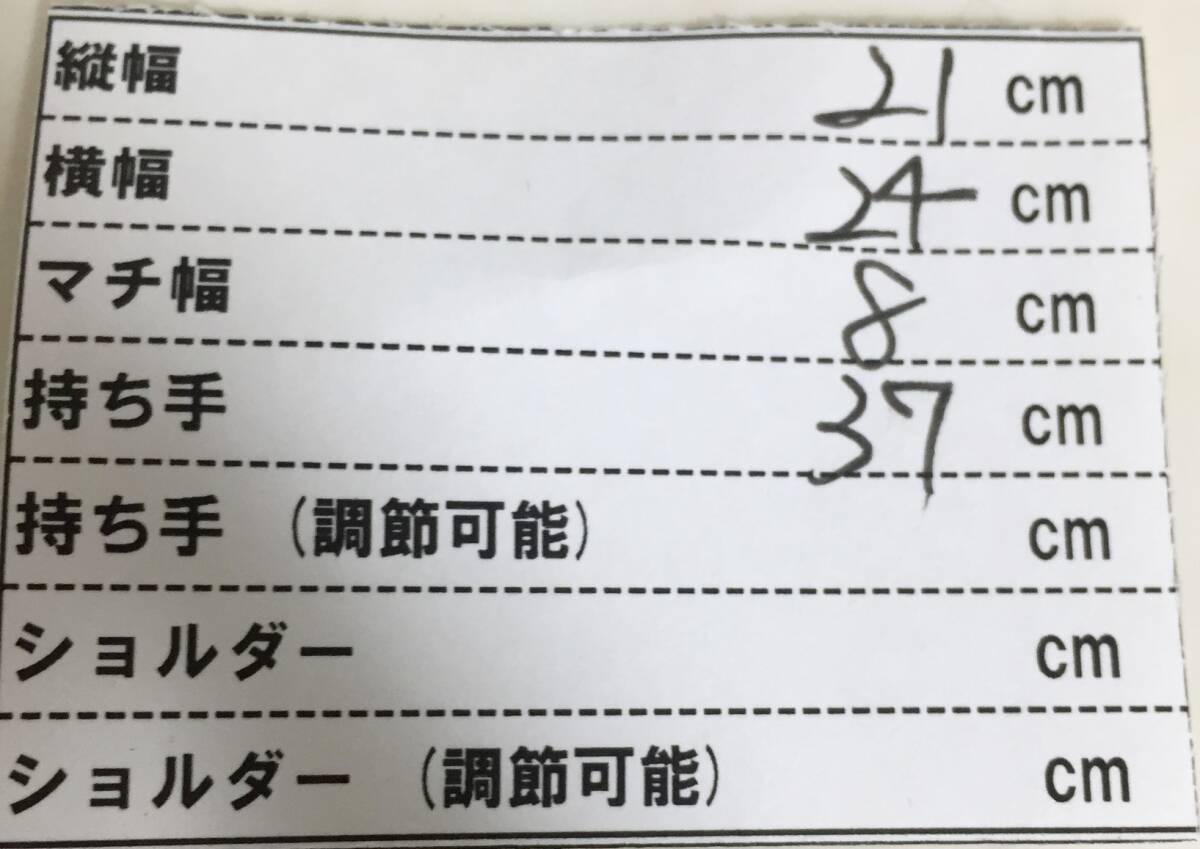 縦幅 21 cm
横幅 24 cm
マチ幅 8 cm
持ち手 37 cm
持ち手 (調節可能) cm
ショルダー cm
ショルダー (調節可能) cm